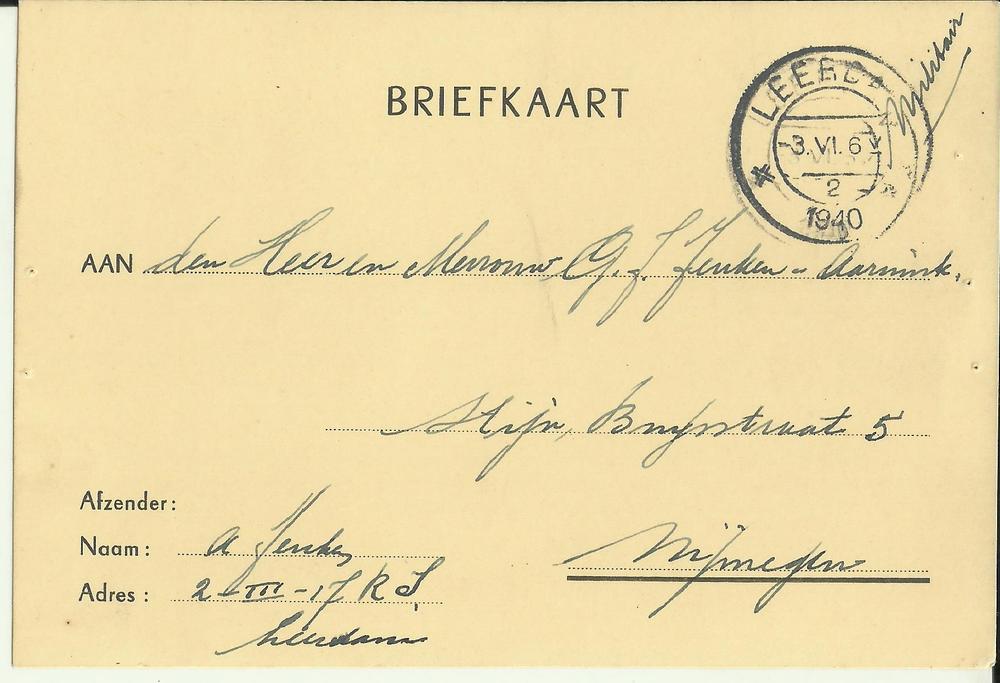 BRIEFKAART
LEERD
3.VI.6
2
1940
Militair
AAN den Heer en Mevrouw G. J. Jenken - Aarnink.
Stijn Buysstraat 5
Nijmegen
Afzender:
Naam: A Jenken
Adres: 2-III-17 R I
Leerdam